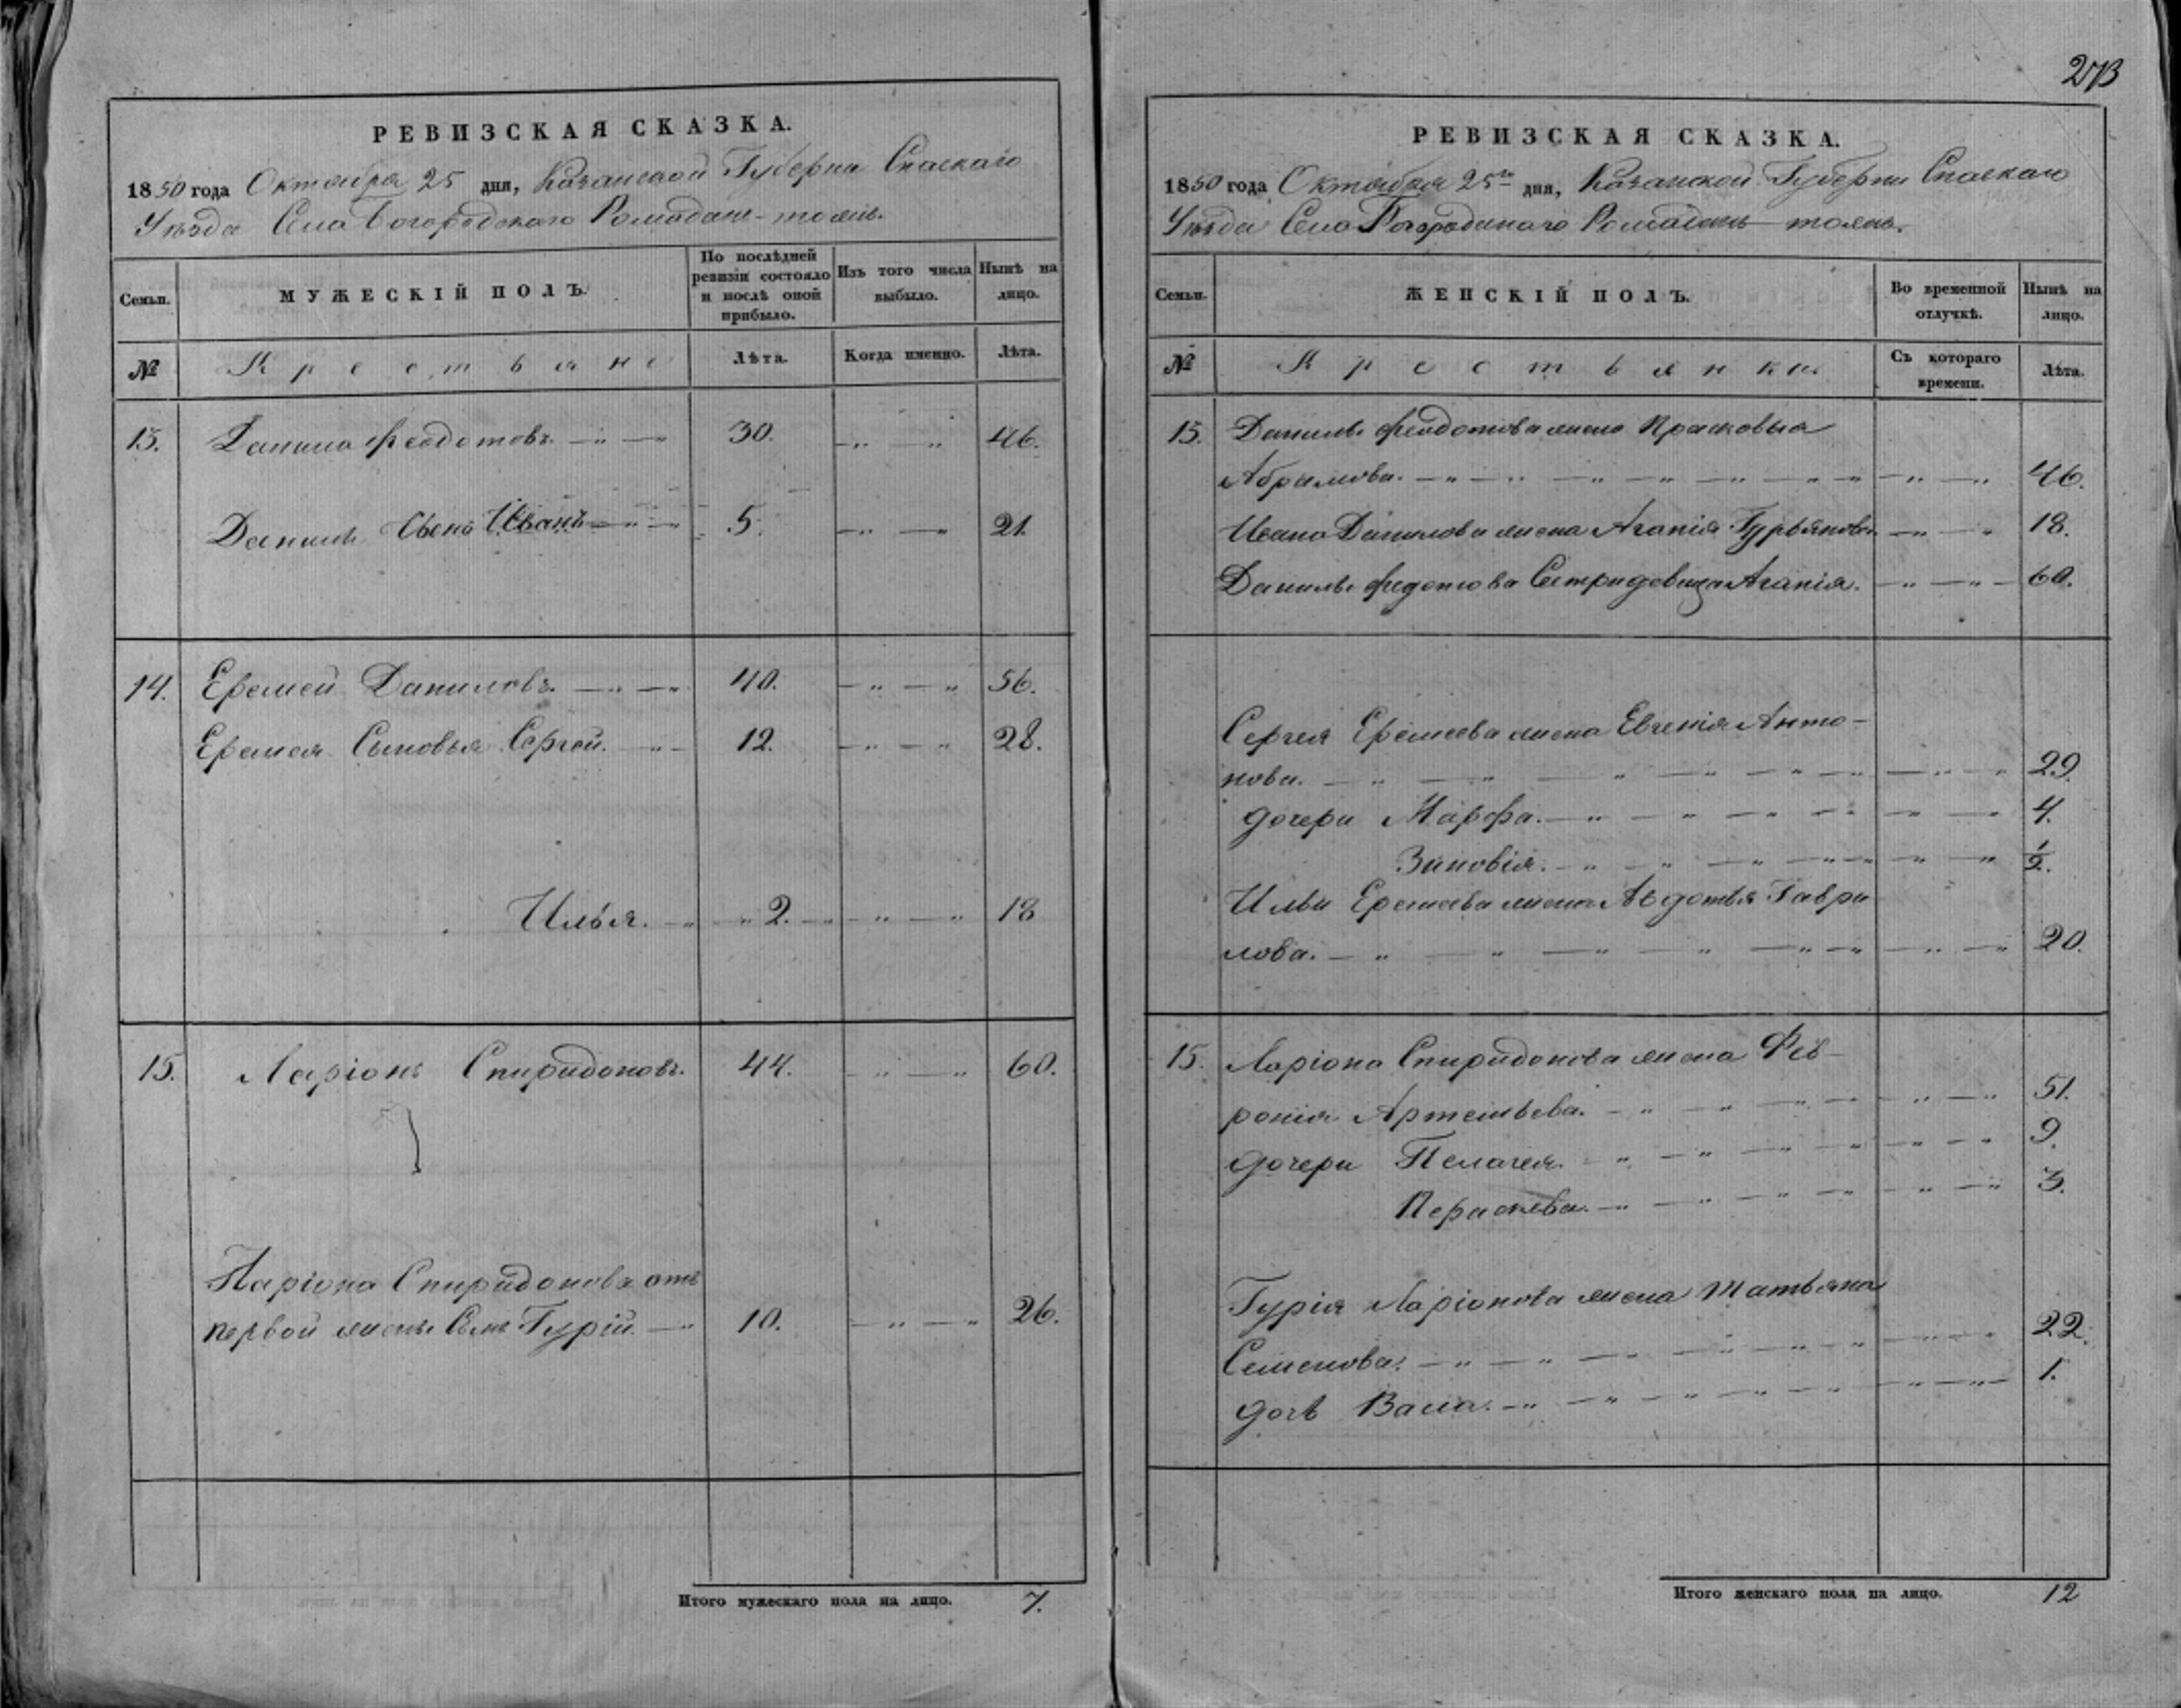 273
РЕВИЗСКАЯ СКАЗКА.
1850 года Октября 25 дня, Казанской Губерни Спаскаго
Уѣзда Села Богородскаго Ромодант-тожъ.
Семьи. МУЖЕСКІЙ ПОЛЪ. По послѣдней ревизіи состояло и послѣ оной прибыло. Изъ того числа выбыло. Нынѣ на лицо.
№ Крестьяне Лѣта. Когда именно. Лѣта.
13. Данила Феодотовъ. 30. 46.
Данилы Сынъ Иванъ 5. 21.
14. Еремей Даниловъ. 40. 56.
Еремея Сыновья Сергей. 12. 28.
Илья. 2. 18
15. Ларіонъ Спиридоновъ. 44. 60.
Ларіона Спиридонова отъ
первой жены Сынъ Гурій 10. 26.
Итого мужескаго пола на лицо. 7.
РЕВИЗСКАЯ СКАЗКА.
1850 года Октября 25го дня, Казанской Губерни Спаскаго
Уѣзда Села тожъ.
Семьи. ЖЕНСКІЙ ПОЛЪ. Во временной отлучкѣ. Нынѣ на лицо.
№ Крестьянки. Съ котораго времени. Лѣта.
13. Данилы Феодотова жена Прасковья
Абрамова. 46.
Ивана Данилова жена Агапія Гурьянова 18.
Данилы Федотова Агапія. 60.
Сергея Еремеева жена Евгенія Анто-
нова. 29.
дочери Марфа. 4.
Зиновія. 1/2.
Ильи Еремеева жена Авдотья Гаври
лова. 20.
15. Ларіона Спиридонова жена Фев-
ронія Артемьева. 51.
дочери Пелагея. 9.
Параскева. 3.
Гурія Ларіонова жена Татьяна
Семенова. 22.
дочь Васса. 1.
Итого женскаго пола на лицо. 12